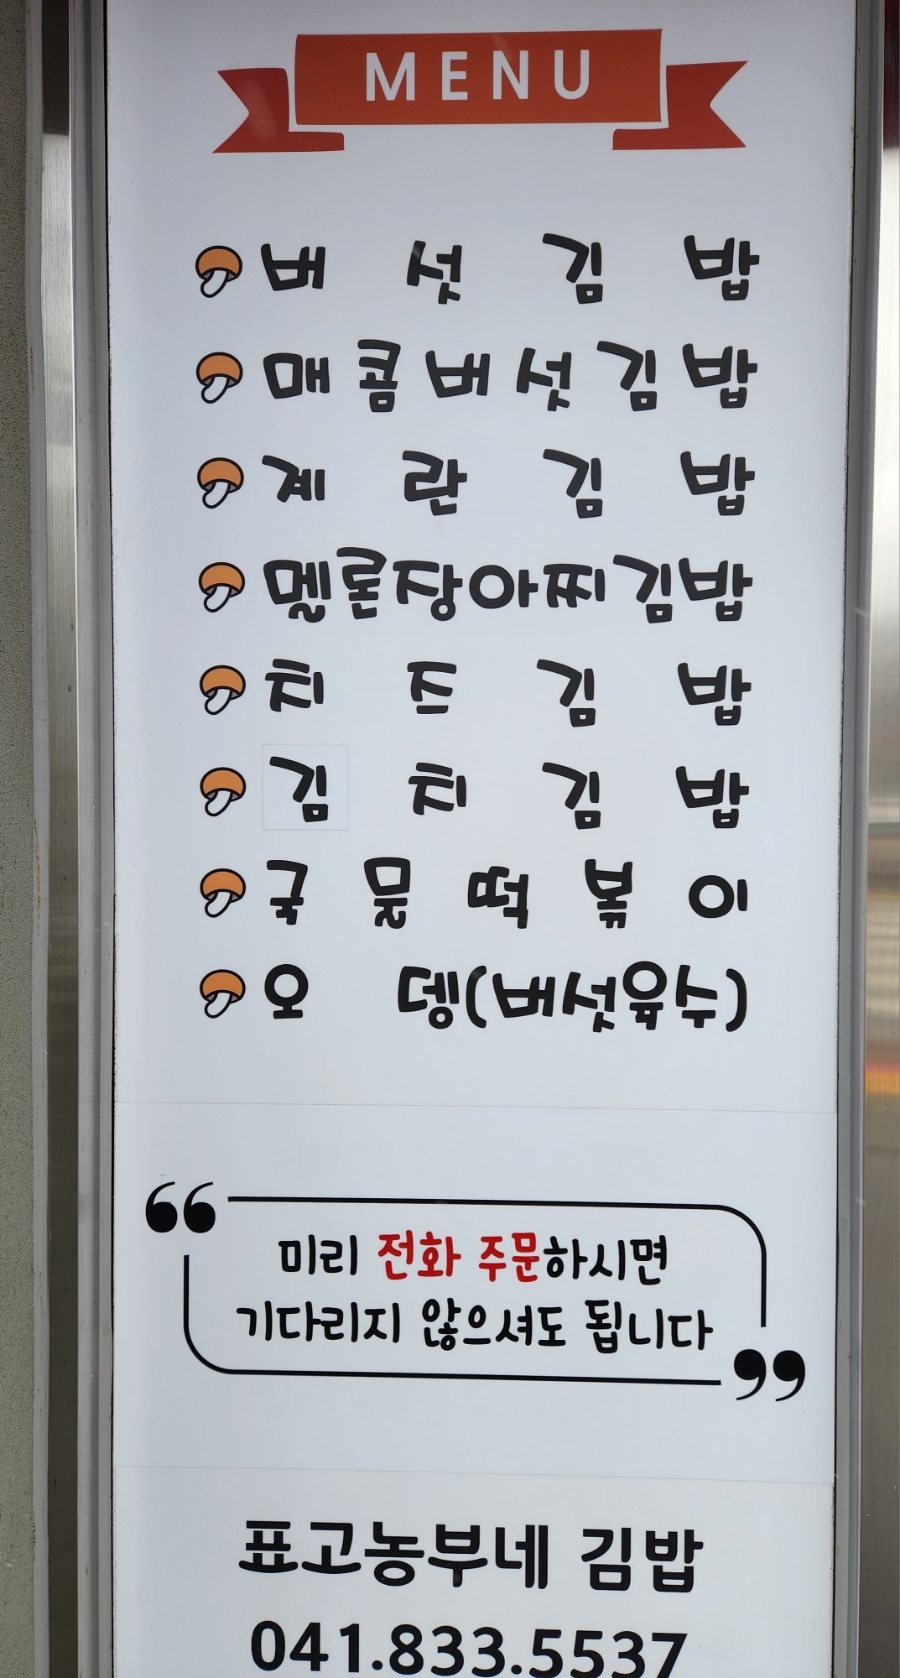 MENU
버섯김밥
매콤버섯김밥
계란김밥
멜론장아찌김밥
치즈김밥
김치김밥
국물떡볶이
오뎅(버섯육수)
미리 전화 주문하시면
기다리지 않으셔도 됩니다
표고농부네 김밥
041.833.5537